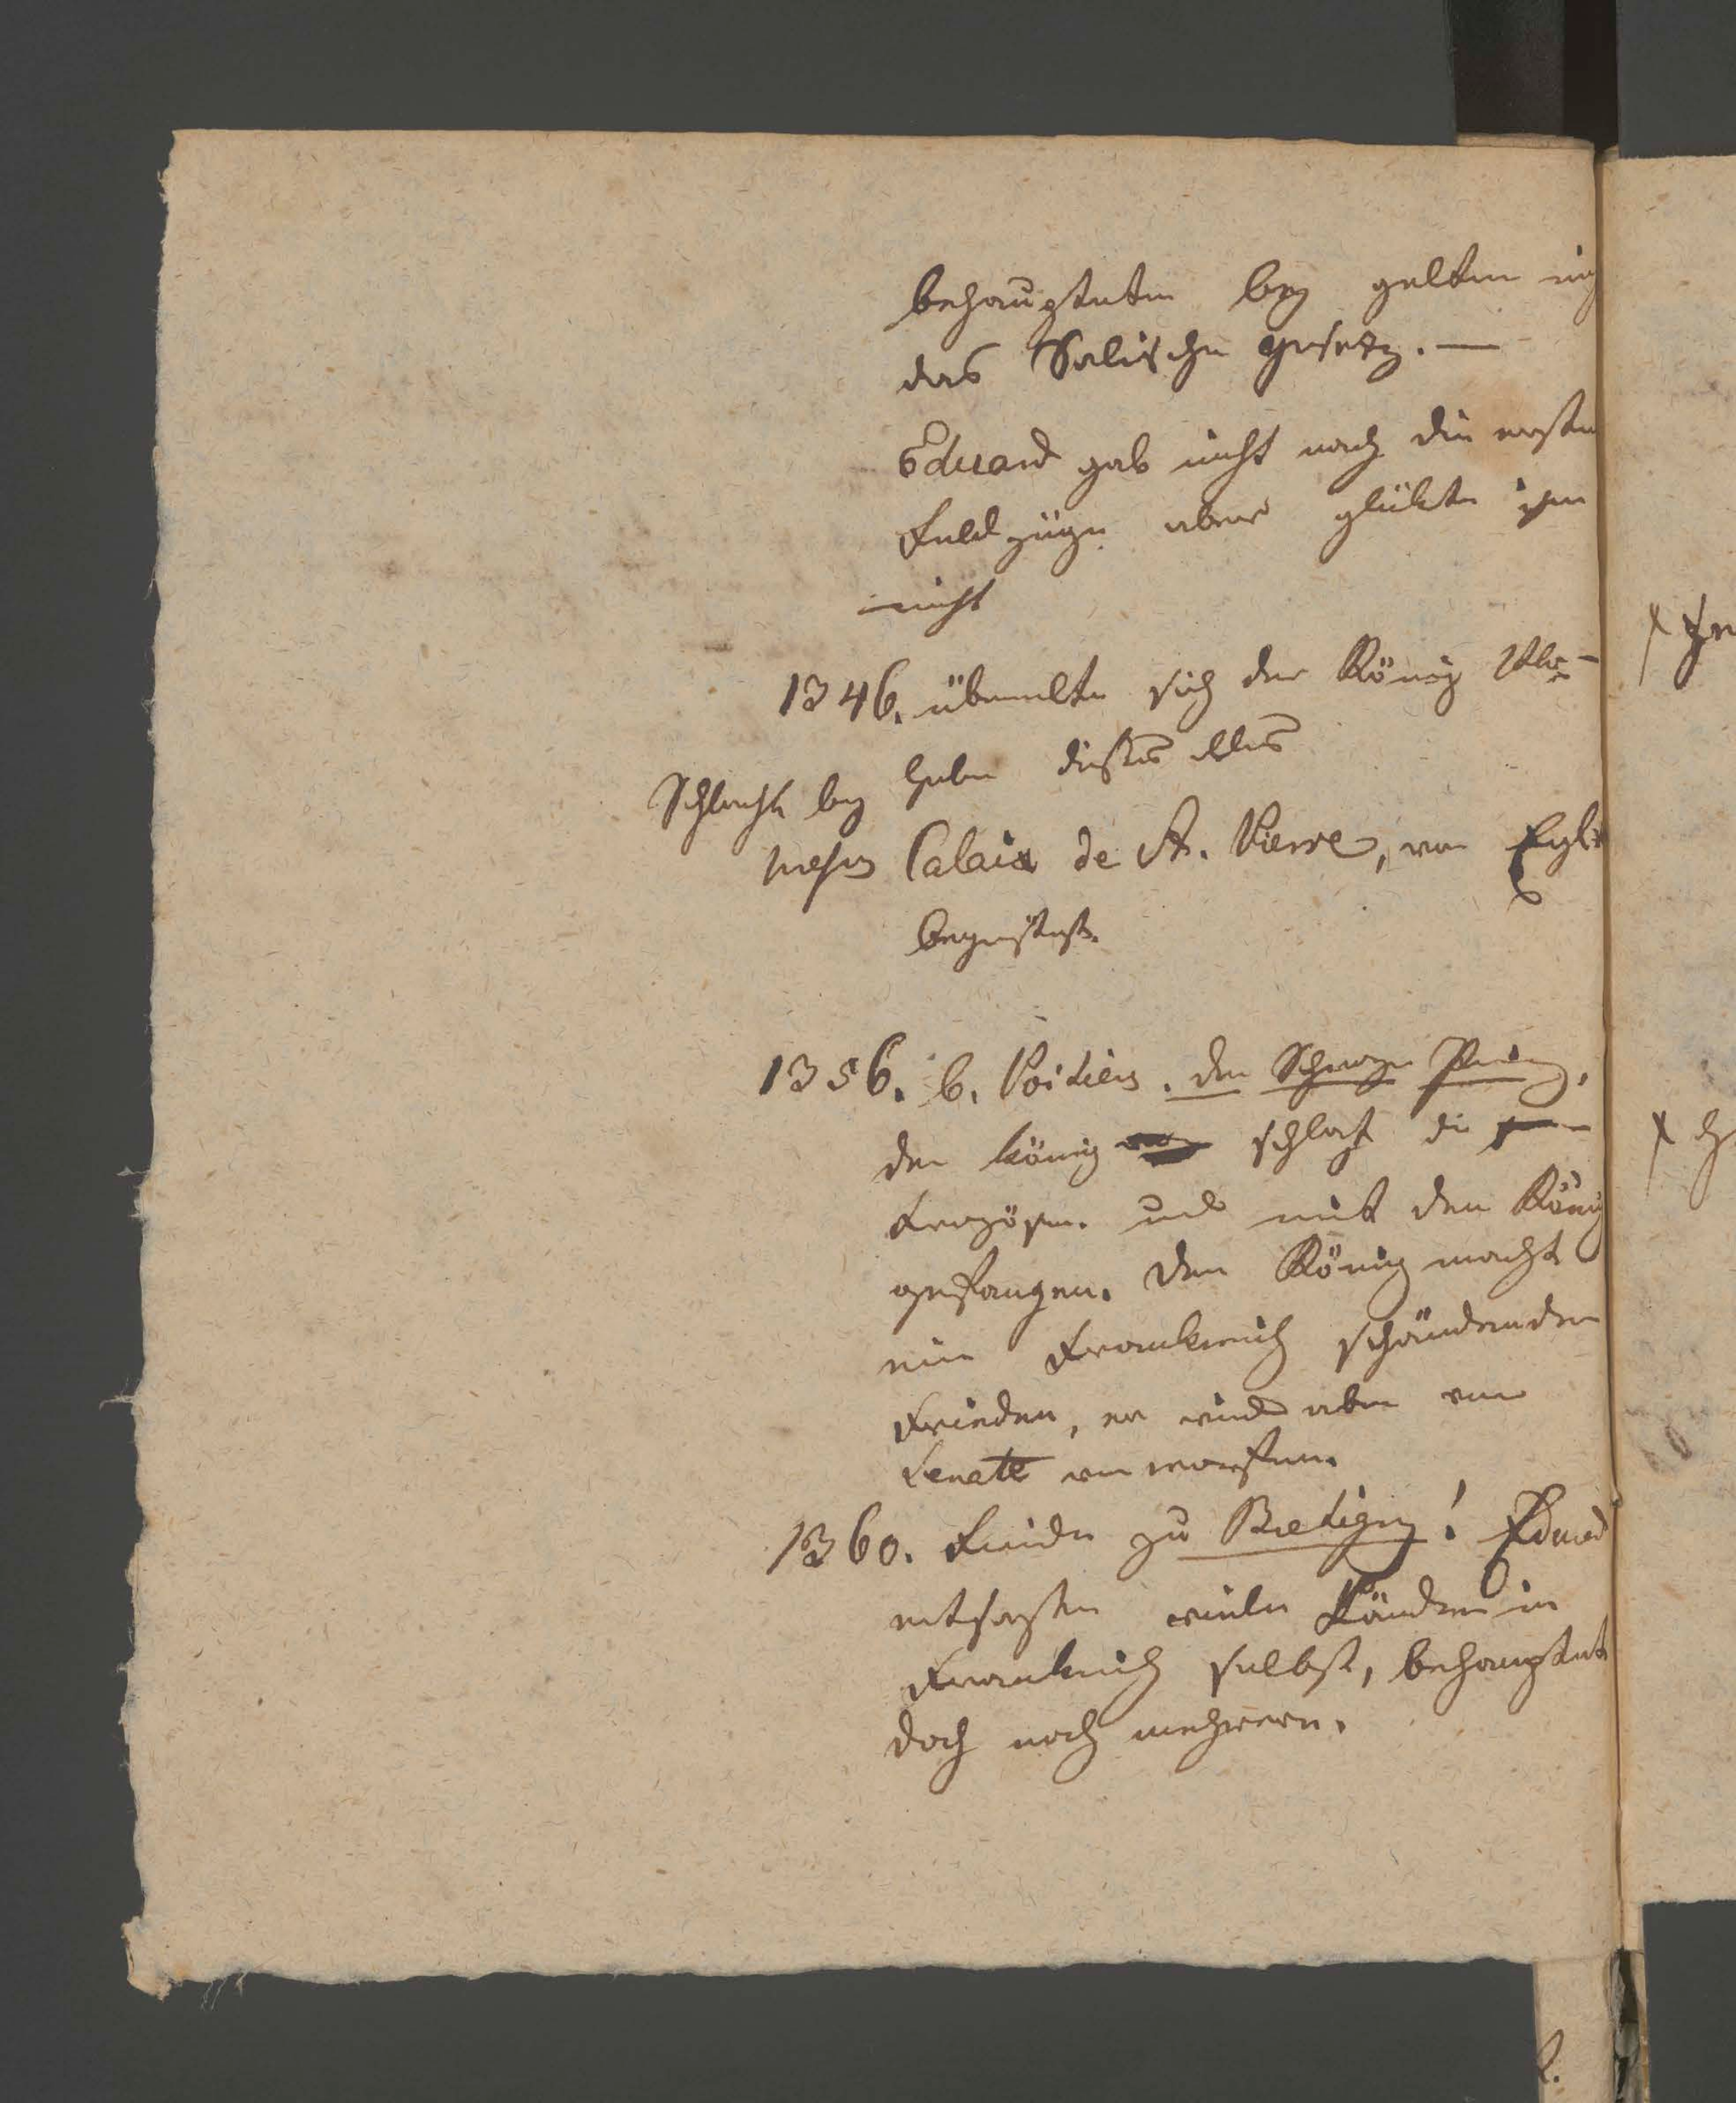 behaupteten bey gelten
das Salische Gesetz. —
Eduard gab nicht nach die ersten
Feldzüge aber glükte ihm
nicht
1346. übereilte sich der König
Schlacht bey
Calais de St. Pierre, von
1356. b. Poitiers. der Schwarze Prinz.
der König schlagt die
Franzosen. und mit den König
gefangen. Der König macht
ein Frankreich schändenden
Frieden, er wird aber vom
Senate verworfen.
1360. Friede zu Bretigny! Eduard
entsagte viele Länder in
Frankreich selbst, behauptet
doch noch mehrere.